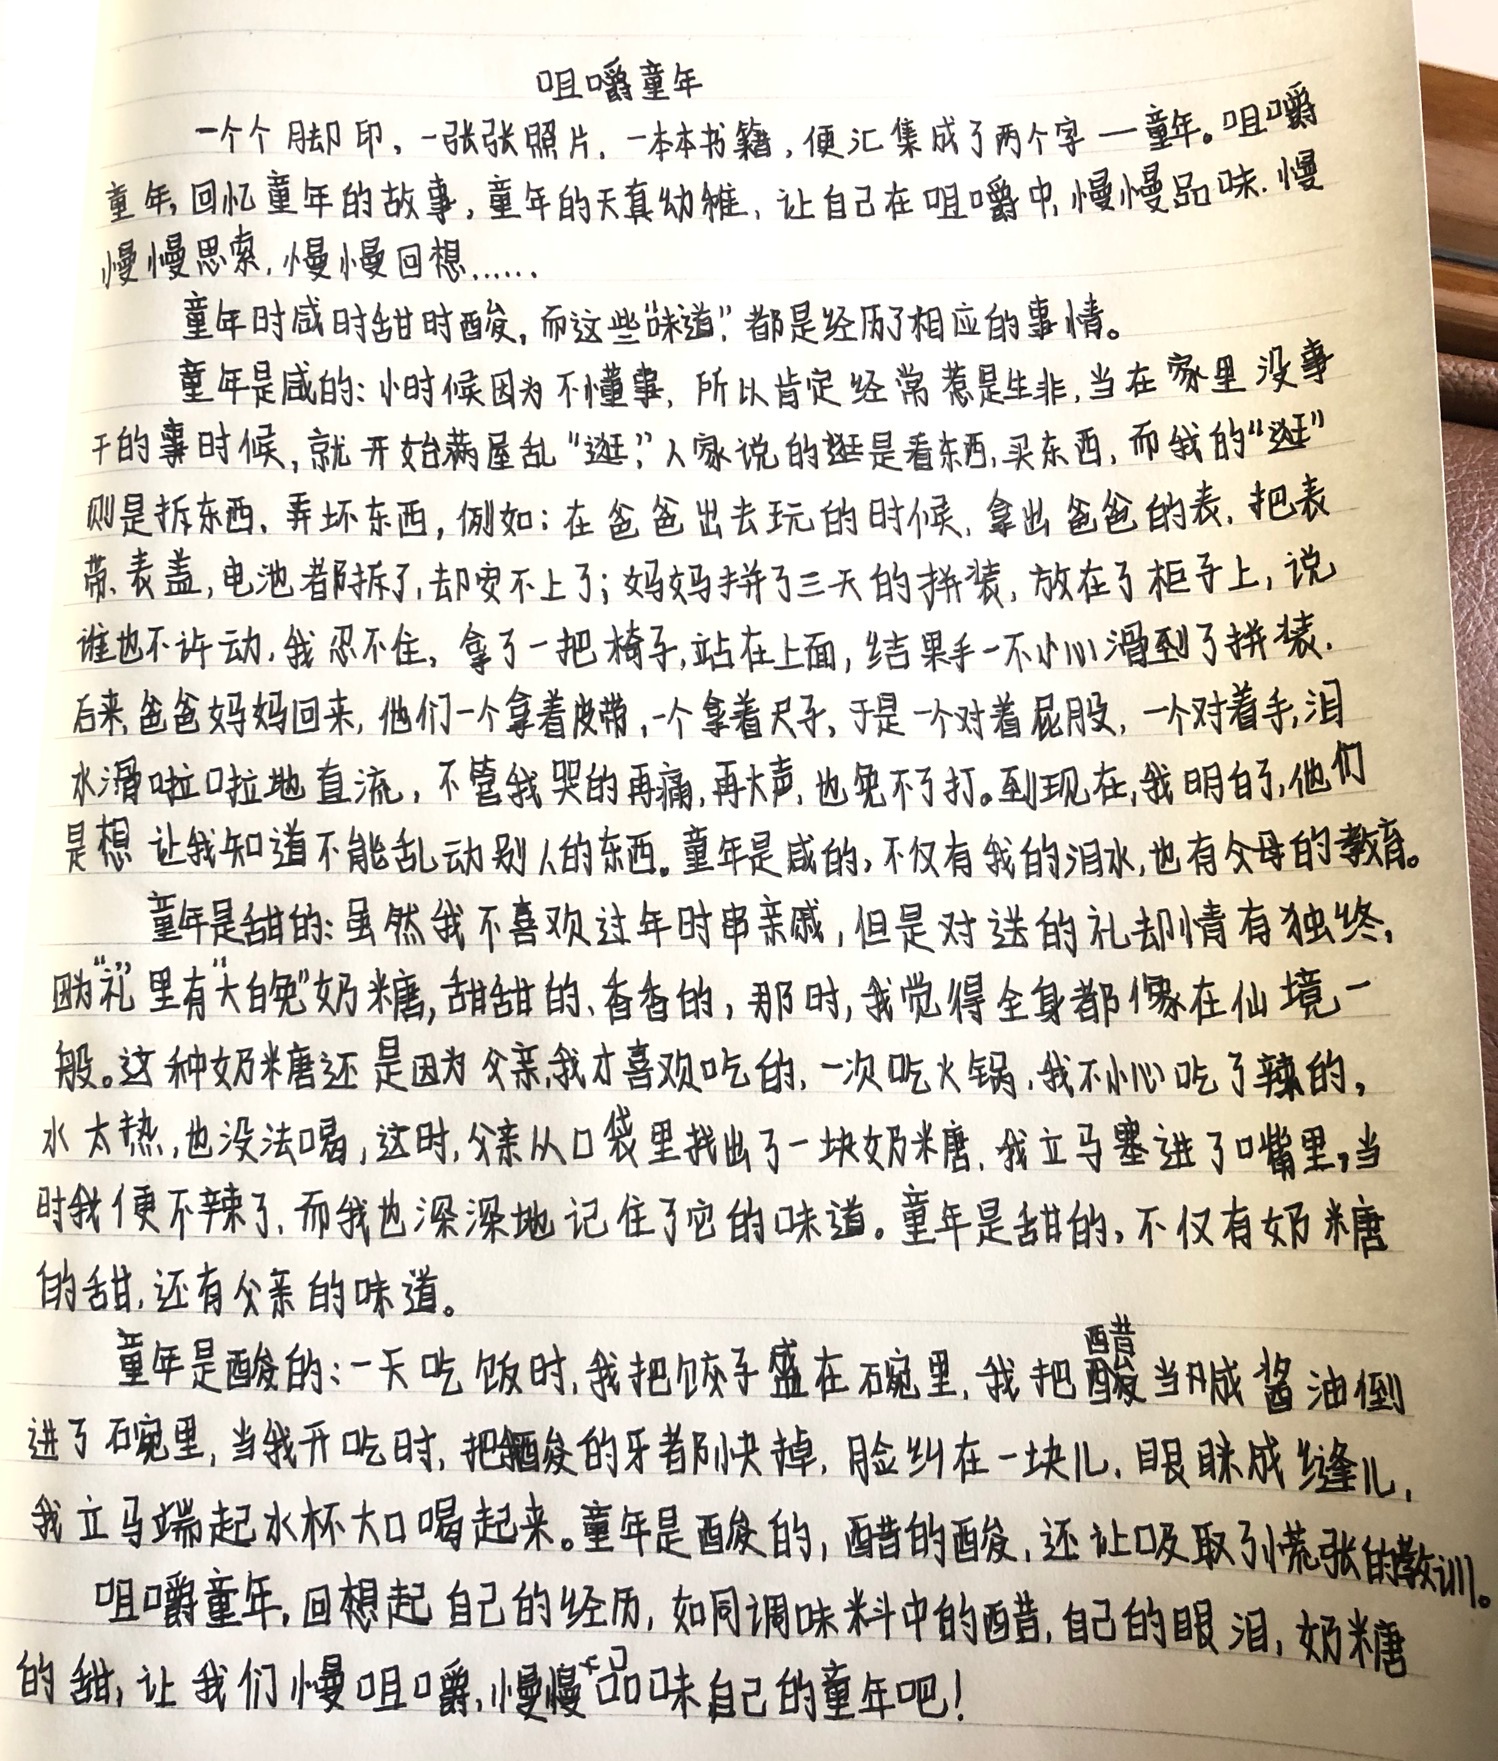 咀嚼童年
一个个脚印，一张张照片，一本本书籍，便汇集成了两个字——童年。咀嚼
童年，回忆童年的故事，童年的天真幼稚，让自己在咀嚼中，慢慢品味，慢
慢慢思索，慢慢回想……
童年时咸时甜时酸，而这些“味道”，都是经历了相应的事情。
童年是咸的：小时候因为不懂事，所以肯定经常惹是生非，当在家里没事
干的事时候，就开始满屋乱“逛”，人家说的逛是看东西，买东西，而我的“逛”
则是拆东西、弄坏东西，例如：在爸爸出去玩的时候，拿出爸爸的表，把表
带、表盖，电池都拆了，却安不上了；妈妈拼了三天的拼装，放在了柜子上，说
谁也不许动，我忍不住，拿了一把椅子，站在上面，结果手一不小心滑到了拼装，
后来，爸爸妈妈回来，他们一个拿着皮带，一个拿着尺子，于是一个对着屁股，一个对着手，泪
水滑啦啦地直流，不管我哭的再痛，再大声，也免不了打。到现在，我明白了，他们
是想让我知道不能乱动别人的东西。童年是咸的，不仅有我的泪水，也有父母的教育。
童年是甜的：虽然我不喜欢过年时串亲戚，但是对送的礼却情有独终，
因为“礼”里有“大白兔”奶糖，甜甜的、香香的，那时，我觉得全身都像在仙境一
般。这种奶糖还是因为父亲，我才喜欢吃的，一次吃火锅，我不小心吃了辣的，
水太热，也没法喝，这时，父亲从口袋里找出了一块奶糖，我立马塞进了嘴里，当
时我便不辣了，而我也深深地记住了它的味道。童年是甜的，不仅有奶糖
的甜，还有父亲的味道。
童年是酸的：一天吃饭时，我把饺子盛在碗里，我把醋当成酱油倒
进了碗里，当我开吃时，把酸的牙都快掉，脸纠在一块儿，眼眯成缝儿，
我立马端起水杯大口喝起来。童年是酸的，醋的酸，还让吸取了慌张的教训。
咀嚼童年，回想起自己的经历，如同调味料中的醋，自己的眼泪，奶糖
的甜，让我们慢咀嚼，慢慢品味自己的童年吧！